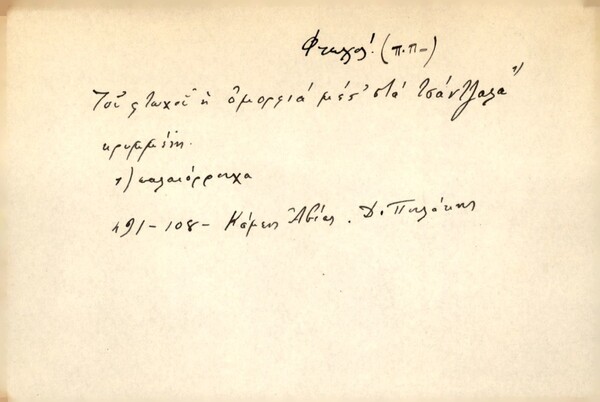 Φτωχός! (π.π-)
Τοῦ φτωχοῦ ἡ ὀμορφιά μέσ' στά τσάντζαλα 1)
κρυμμένη.
1) παλαιόρρουχα
491-108- Κάμπος Ἀβίας. Δ. Πουλάκης